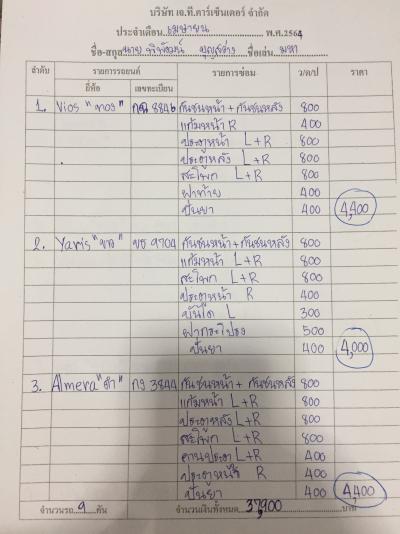 บริษัท เจ.ที.คาร์เซ็นเตอร์ จำกัด
ประจำเดือน เมษายน พ.ศ.2564
ชื่อ-สกุล นาย พิพัฒน์ บุญสว่าง ชื่อเล่น มหา
ลำดับ รายการรถยนต์ รายการซ่อม ว/ด/ป ราคา
ยี่ห้อ เลขทะเบียน
1. Vios "ทอง" 8846 กันชนหน้า + กันชนหลัง 800
แก้มหน้า R 400
ประตูหน้า L+R 800
ประตูหลัง L+R 800
สะโพก L+R 800
ฝาท้าย 400
ปั่นยา 400 4,400
2. Yaris "ขาว" ขธ 9704 กันชนหน้า+กันชนหลัง 800
แก้มหน้า L+R 800
สะโพก L+R 800
ประตูหน้า R 400
บันได L 300
ฝากระโปรง 500
ปั่นยา 400 4,000
3. Almera "ดำ" กง 3844 กันชนหน้า + กันชนหลัง 800
แก้มหน้า L+R 800
ประตูหลัง L+R 800
สะโพก L+R 800
คานประตู L+R 400
ประตูหน้า R 400
ปั่นยา 400 4,400
จำนวนรถ 9 คัน จำนวนเงินทั้งหมด 37,900 บาท